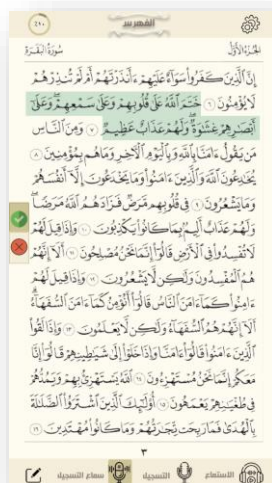 الفهرس
سُورَةُ البَقَرَةِ
الجُزْءُ الأَوَّلُ
إِنَّ ٱلَّذِينَ كَفَرُوا۟ سَوَآءٌ عَلَيْهِمْ ءَأَنذَرْتَهُمْ أَمْ لَمْ تُنذِرْهُمْ
لَا يُؤْمِنُونَ ٦ خَتَمَ ٱللَّهُ عَلَىٰ قُلُوبِهِمْ وَعَلَىٰ سَمْعِهِمْ ۖ وَعَلَىٰٓ
أَبْصَـٰرِهِمْ غِشَـٰوَةٌ ۖ وَلَهُمْ عَذَابٌ عَظِيمٌ ٧ وَمِنَ ٱلنَّاسِ
مَن يَقُولُ ءَامَنَّا بِٱللَّهِ وَبِٱلْيَوْمِ ٱلْـَٔاخِرِ وَمَا هُم بِمُؤْمِنِينَ ٨
يُخَـٰدِعُونَ ٱللَّهَ وَٱلَّذِينَ ءَامَنُوا۟ وَمَا يَخْدَعُونَ إِلَّآ أَنفُسَهُمْ
وَمَا يَشْعُرُونَ ٩ فِى قُلُوبِهِم مَّرَضٌ فَزَادَهُمُ ٱللَّهُ مَرَضًا ۖ
وَلَهُمْ عَذَابٌ أَلِيمٌۢ بِمَا كَانُوا۟ يَكْذِبُونَ ١٠ وَإِذَا قِيلَ لَهُمْ
لَا تُفْسِدُوا۟ فِى ٱلْأَرْضِ قَالُوٓا۟ إِنَّمَا نَحْنُ مُصْلِحُونَ ١١ أَلَآ إِنَّهُمْ
هُمُ ٱلْمُفْسِدُونَ وَلَـٰكِن لَّا يَشْعُرُونَ ١٢ وَإِذَا قِيلَ لَهُمْ
ءَامِنُوا۟ كَمَآ ءَامَنَ ٱلنَّاسُ قَالُوٓا۟ أَنُؤْمِنُ كَمَآ ءَامَنَ ٱلسُّفَهَآءُ ۗ
أَلَآ إِنَّهُمْ هُمُ ٱلسُّفَهَآءُ وَلَـٰكِن لَّا يَعْلَمُونَ ١٣ وَإِذَا لَقُوا۟
ٱلَّذِينَ ءَامَنُوا۟ قَالُوٓا۟ ءَامَنَّا وَإِذَا خَلَوْا۟ إِلَىٰ شَيَـٰطِينِهِمْ قَالُوٓا۟ إِنَّا
مَعَكُمْ إِنَّمَا نَحْنُ مُسْتَهْزِءُونَ ١٤ ٱللَّهُ يَسْتَهْزِئُ بِهِمْ وَيَمُدُّهُمْ
فِى طُغْيَـٰنِهِمْ يَعْمَهُونَ ١٥ أُو۟لَـٰٓئِكَ ٱلَّذِينَ ٱشْتَرَوُا۟ ٱلضَّلَـٰلَةَ
بِٱلْهُدَىٰ فَمَا رَبِحَت تِّجَـٰرَتُهُمْ وَمَا كَانُوا۟ مُهْتَدِينَ ١٦
٣
الاستماع
التسجيل
سماع التسجيل